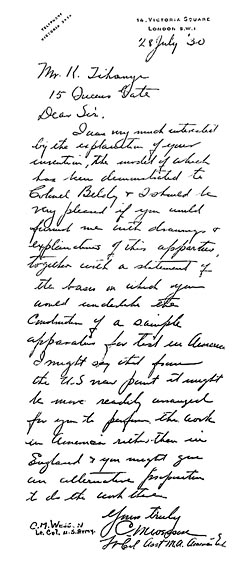 TELEPHONE
VICTORIA
14, VICTORIA SQUARE
LONDON S.W.1
28 July '30
Mr. K. Tihanyi
15 Queens Gate
Dear Sir.
I was very much interested
by the explanation of your
invention, the model of which
has been demonstrated to
Colonel & I should be
very pleased if you would
furnish me with drawings &
explanations of this apparatus,
together with a statement of
the basis on which you
would undertake the
Construction of a sample
apparatus for test in America
I might say that from
the U.S view point it might
be more readily arranged
for you to perform the work
in America rather than in
England & you might give
an alternative proposition
to do the work there
Yours truly
C.M.
Lt Col Asst M.A.
C.M. WESS. N
LT. COL. U.S. ARMY.